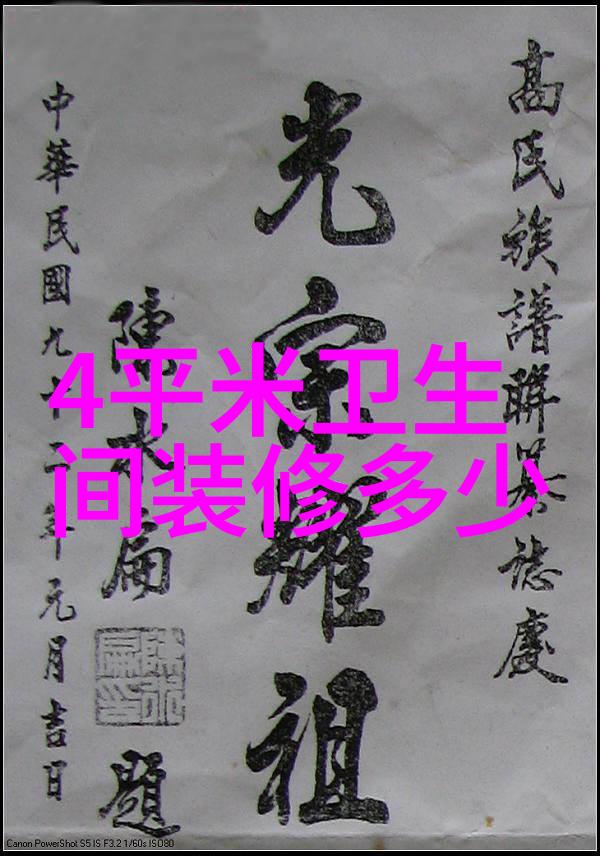 高氏族譜聯誌慶
光宗耀祖
陳水扁題
陳水扁印
中華民國九十二年元月吉日
4平米卫生
间装修多少
Canon PowerShot S5 IS F3.2 1/60s ISO80